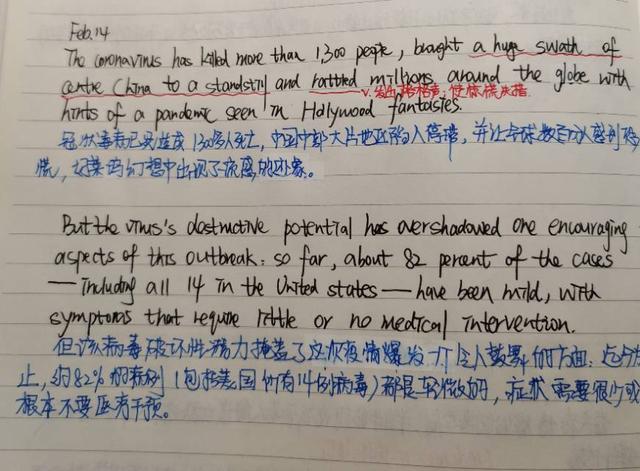 Feb.14
The coronavirus has killed more than 1,300 people, brought a huge swath of
centre China to a standstill and rattled millions around the globe with
v. 发出格格声；使惊慌失措
hints of a pandemic seen in Hollywood fantasies.
冠状病毒已经造成1300多人死亡，中国中部大片地区陷入停滞，并让全球数百万人感到恐
慌，好莱坞幻想中出现了流感的迹象。
But the virus's destructive potential has overshadowed one encouraging
aspects of this outbreak: so far, about 82 percent of the cases
— including all 14 in the United states — have been mild, with
symptoms that require little or no medical intervention.
但该病毒破坏性潜力掩盖了这次疫情爆发一个令人鼓舞的方面：迄今为
止，约82%的病例（包括美国所有14例病毒）都是轻微的，症状需要很少或
根本不要医疗干预。